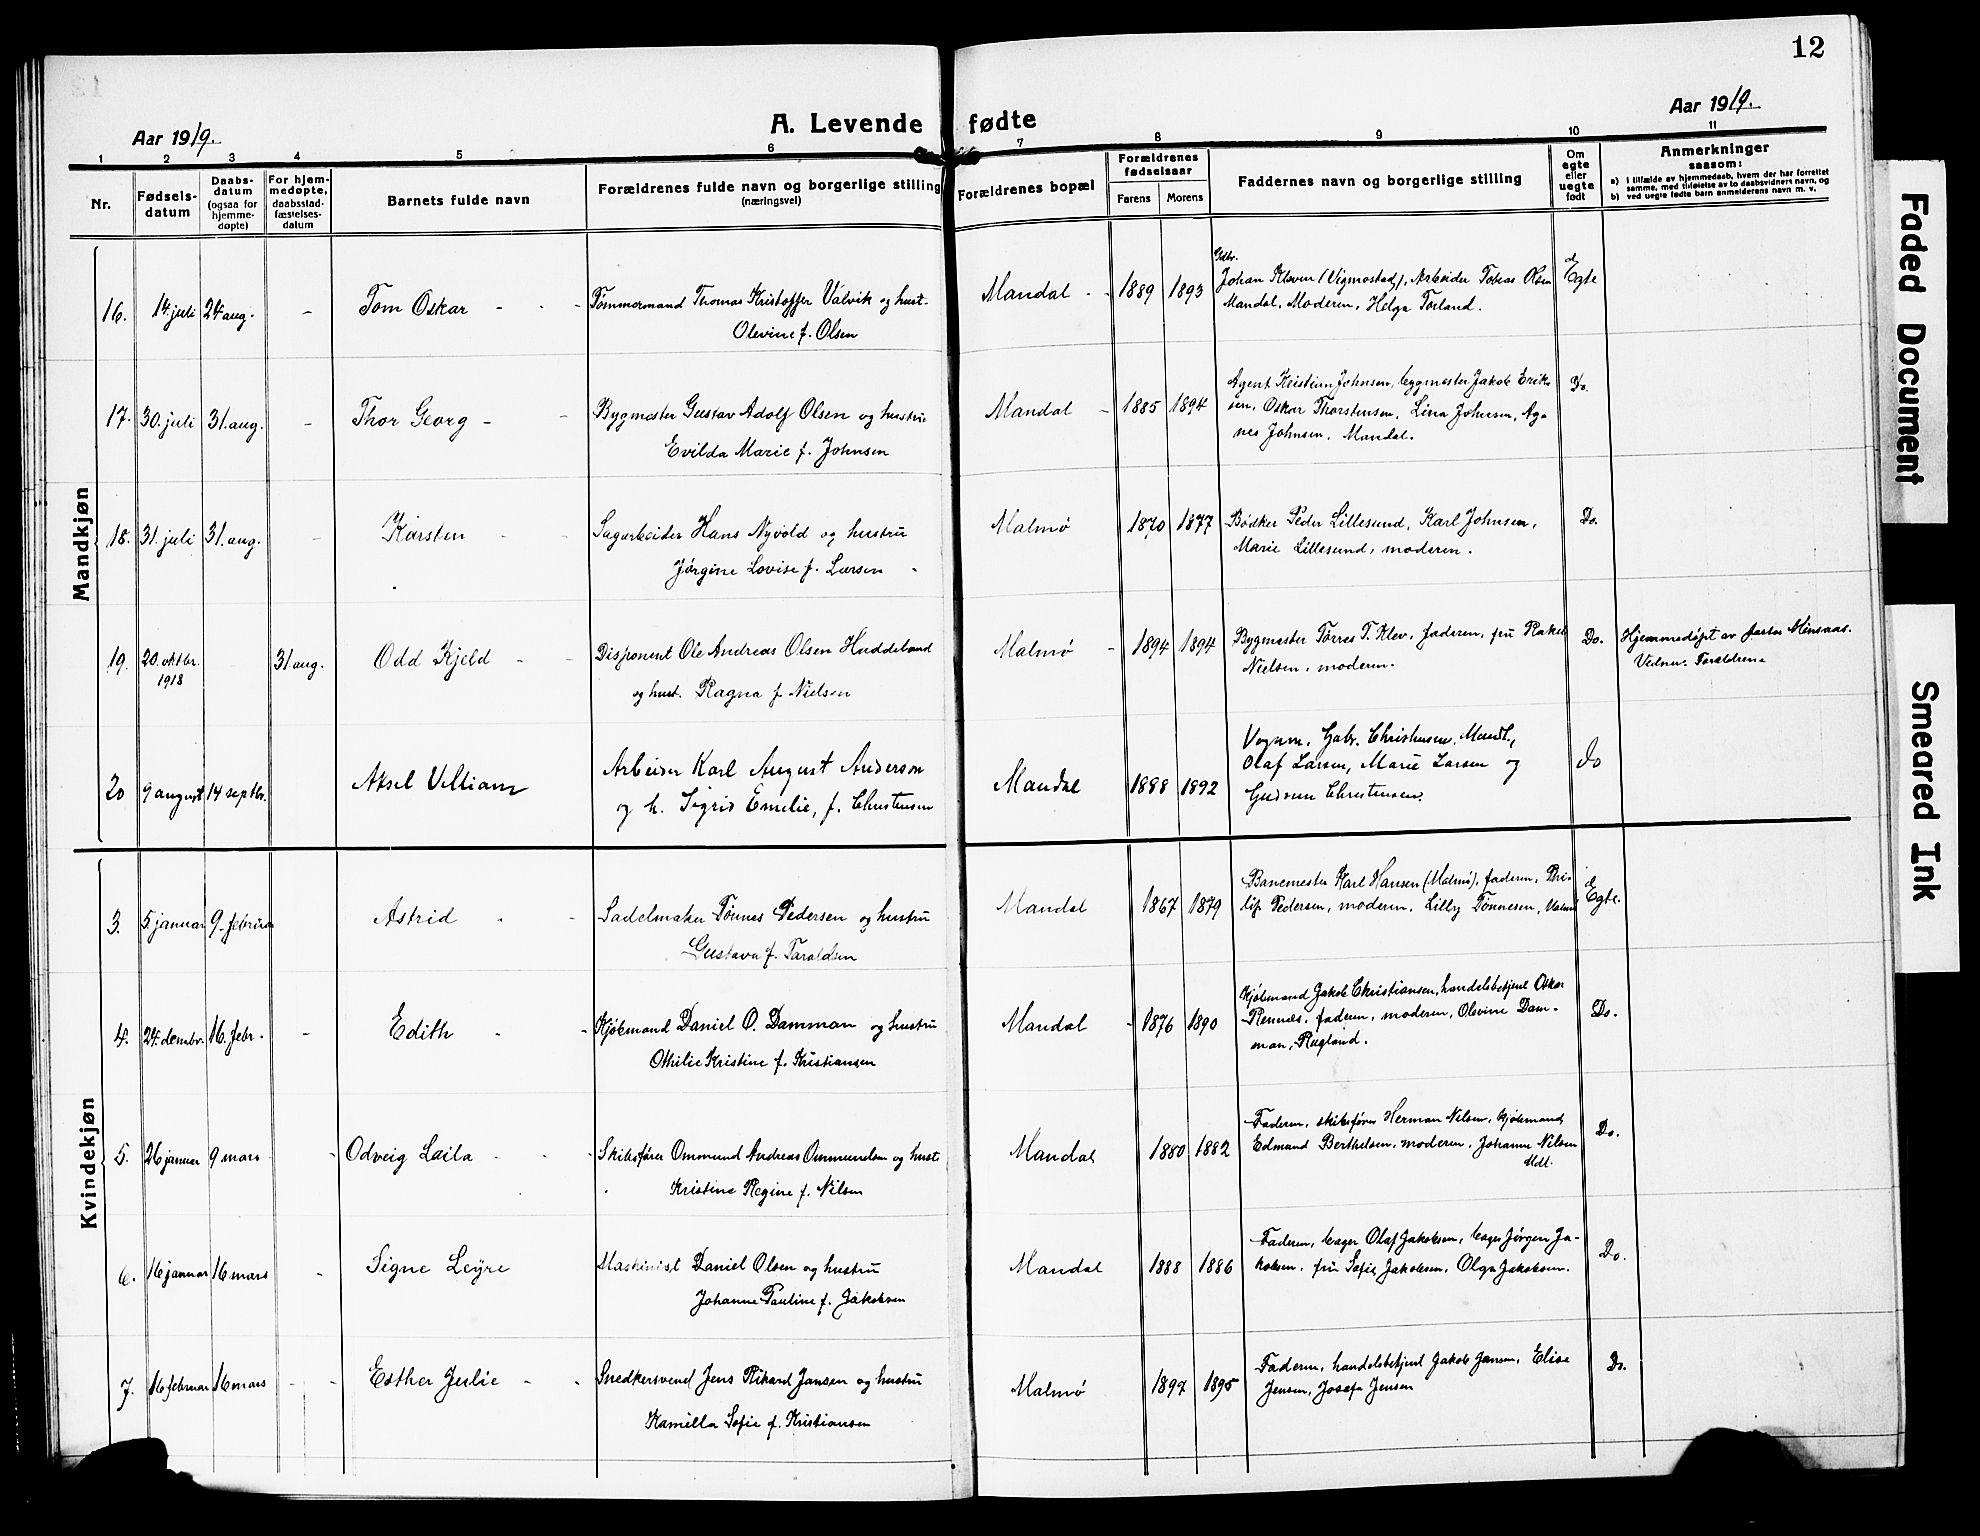 12
Aar 1919.
A. Levende fødte
Aar 1919.
1 2 3 4 5 6 7 8 9 10 11
Nr.
Fødsels-
datum
Daabs-
datum
(ogsaa for
hjemme-
døpte)
For hjem-
medøpte,
daabsstad-
fæstelses-
datum
Barnets fulde navn
Forældrenes fulde navn og borgerlige stilling
(næringsvei)
Forældrenes bopæl
Forældrenes
fødselsaar
Farens Morens
Faddernes navn og borgerlige stilling
Om
egte
eller
uegte
født
Anmerkninger
saasom:
a) i tilfælde av hjemmedaab, hvem der har forrettet
samme, med tilføielse av to daabsvidners navn, og
b) ved uegte fødte barn anmelderens navn m. v.
Mandkjøn
16. 14. juli 24 aug. - Tom Oskar - - Tømmermand Thomas Kristoffer Valvik og hust.
Olevine f. Olsen
Mandal - - 1889 1893
Gdbr.
Johan Kleven (Vigmostad), Arbeider Tobias Olsen
Mandal, Moderen, Helga Torland.
Egte
17. 30. juli 31. aug. - Thor Georg - - Bygmester Gustav Adolf Olsen og hustru
Evilda Marie f. Johnsen
Mandal - 1885 1894
Agent Kristian Johnsen, bygmester Jakob Erik-
sen, Oskar Thorstensen, Lina Johnsen, Ag-
nes Johnsen, Mandal.
Do.
18. 31. juli 31. aug. - Karsten - - Sagarbeider Hans Nyvold og hustru
Jørgine Lovise f. Larsen
Malmø 1870 1877
Bødker Peder Lillesund, Karl Johnsen,
Marie Lillesund, moderen.
Do.
19. 20. oktbr. 1918 - 31 aug. Odd Kjeld - - Disponent Ole Andreas Olsen Huddeland
og hust. Ragna f. Nielsen
Malmø - 1894 1894
Bygmester Torres T. Klev, faderen, fru Rakel
Nielsen, moderen.
Do.
Hjemmedøpt av pastor
Vidner. Forældrene
20 9 august 14 septbr. Aksel Villiam Arbeider Karl August Anderson
og h. Sigrid Emelie, f. Christensen
Mandal 1888 1892
Vognm. Gabr. Christensen, Mandl.,
Olaf Larsen, Marie Larsen og
Gudrun Christensen.
Do
Kvindekjøn
3. 5. januar 9. februar Astrid - - Sadelmaker Tønnes Pedersen og hustru
Gustava f. Taraldsen
Mandal 1867 1879
Banemester Karl Hansen (Malmø), faderen, Phi-
lip Pedersen, moderen, Lilly Tønnesen,
Egte.
4. 24. dembr. 16. febr. - Edith - - Kjøbmand Daniel O. Damman og hustru
Othilie Kristine f. Kristiansen
Mandal - 1876 1890
Kjøbmand Jakob Christiansen, handelsbetjent Oskar
Rennæs, faderen, moderen, Olevine Dam-
man, Røgland.
Do.
5. 26 januar 9 mars - Odveig Laila - - - Skibsfører Ommund Andreas Ommundsen og hust
Kristine Regine f. Nilsen
Mandal 1880 1882
Faderen, skibsfører Herman Nilsen, kjøbmand
Edmund Berthelsen, moderen, Johanne Nilsen
Mdl.
Do.
6. 16 januar 16 mars - Signe Leyre Maskinist Daniel Olsen og hustru
Johanne Pauline f. Jakobsen
Mandal 1888 1886
Faderen, bager Olaf Jakobsen, bager Jørgen Ja-
kobsen, fru Sofie Jakobsen, Olga Jakobsen.
Do.
7. 16 februar 16 mars - - Esther Julie - - Snedkersvend Jens Rikard Jansen og hustru
Kamilla Sofie f. Kristiansen
Malmø 1897 1895
Faderen, handelsbetjent Jakob Jansen, Elise
Jensen, Josefa Jensen
Do.
Faded Document
Smeared Ink